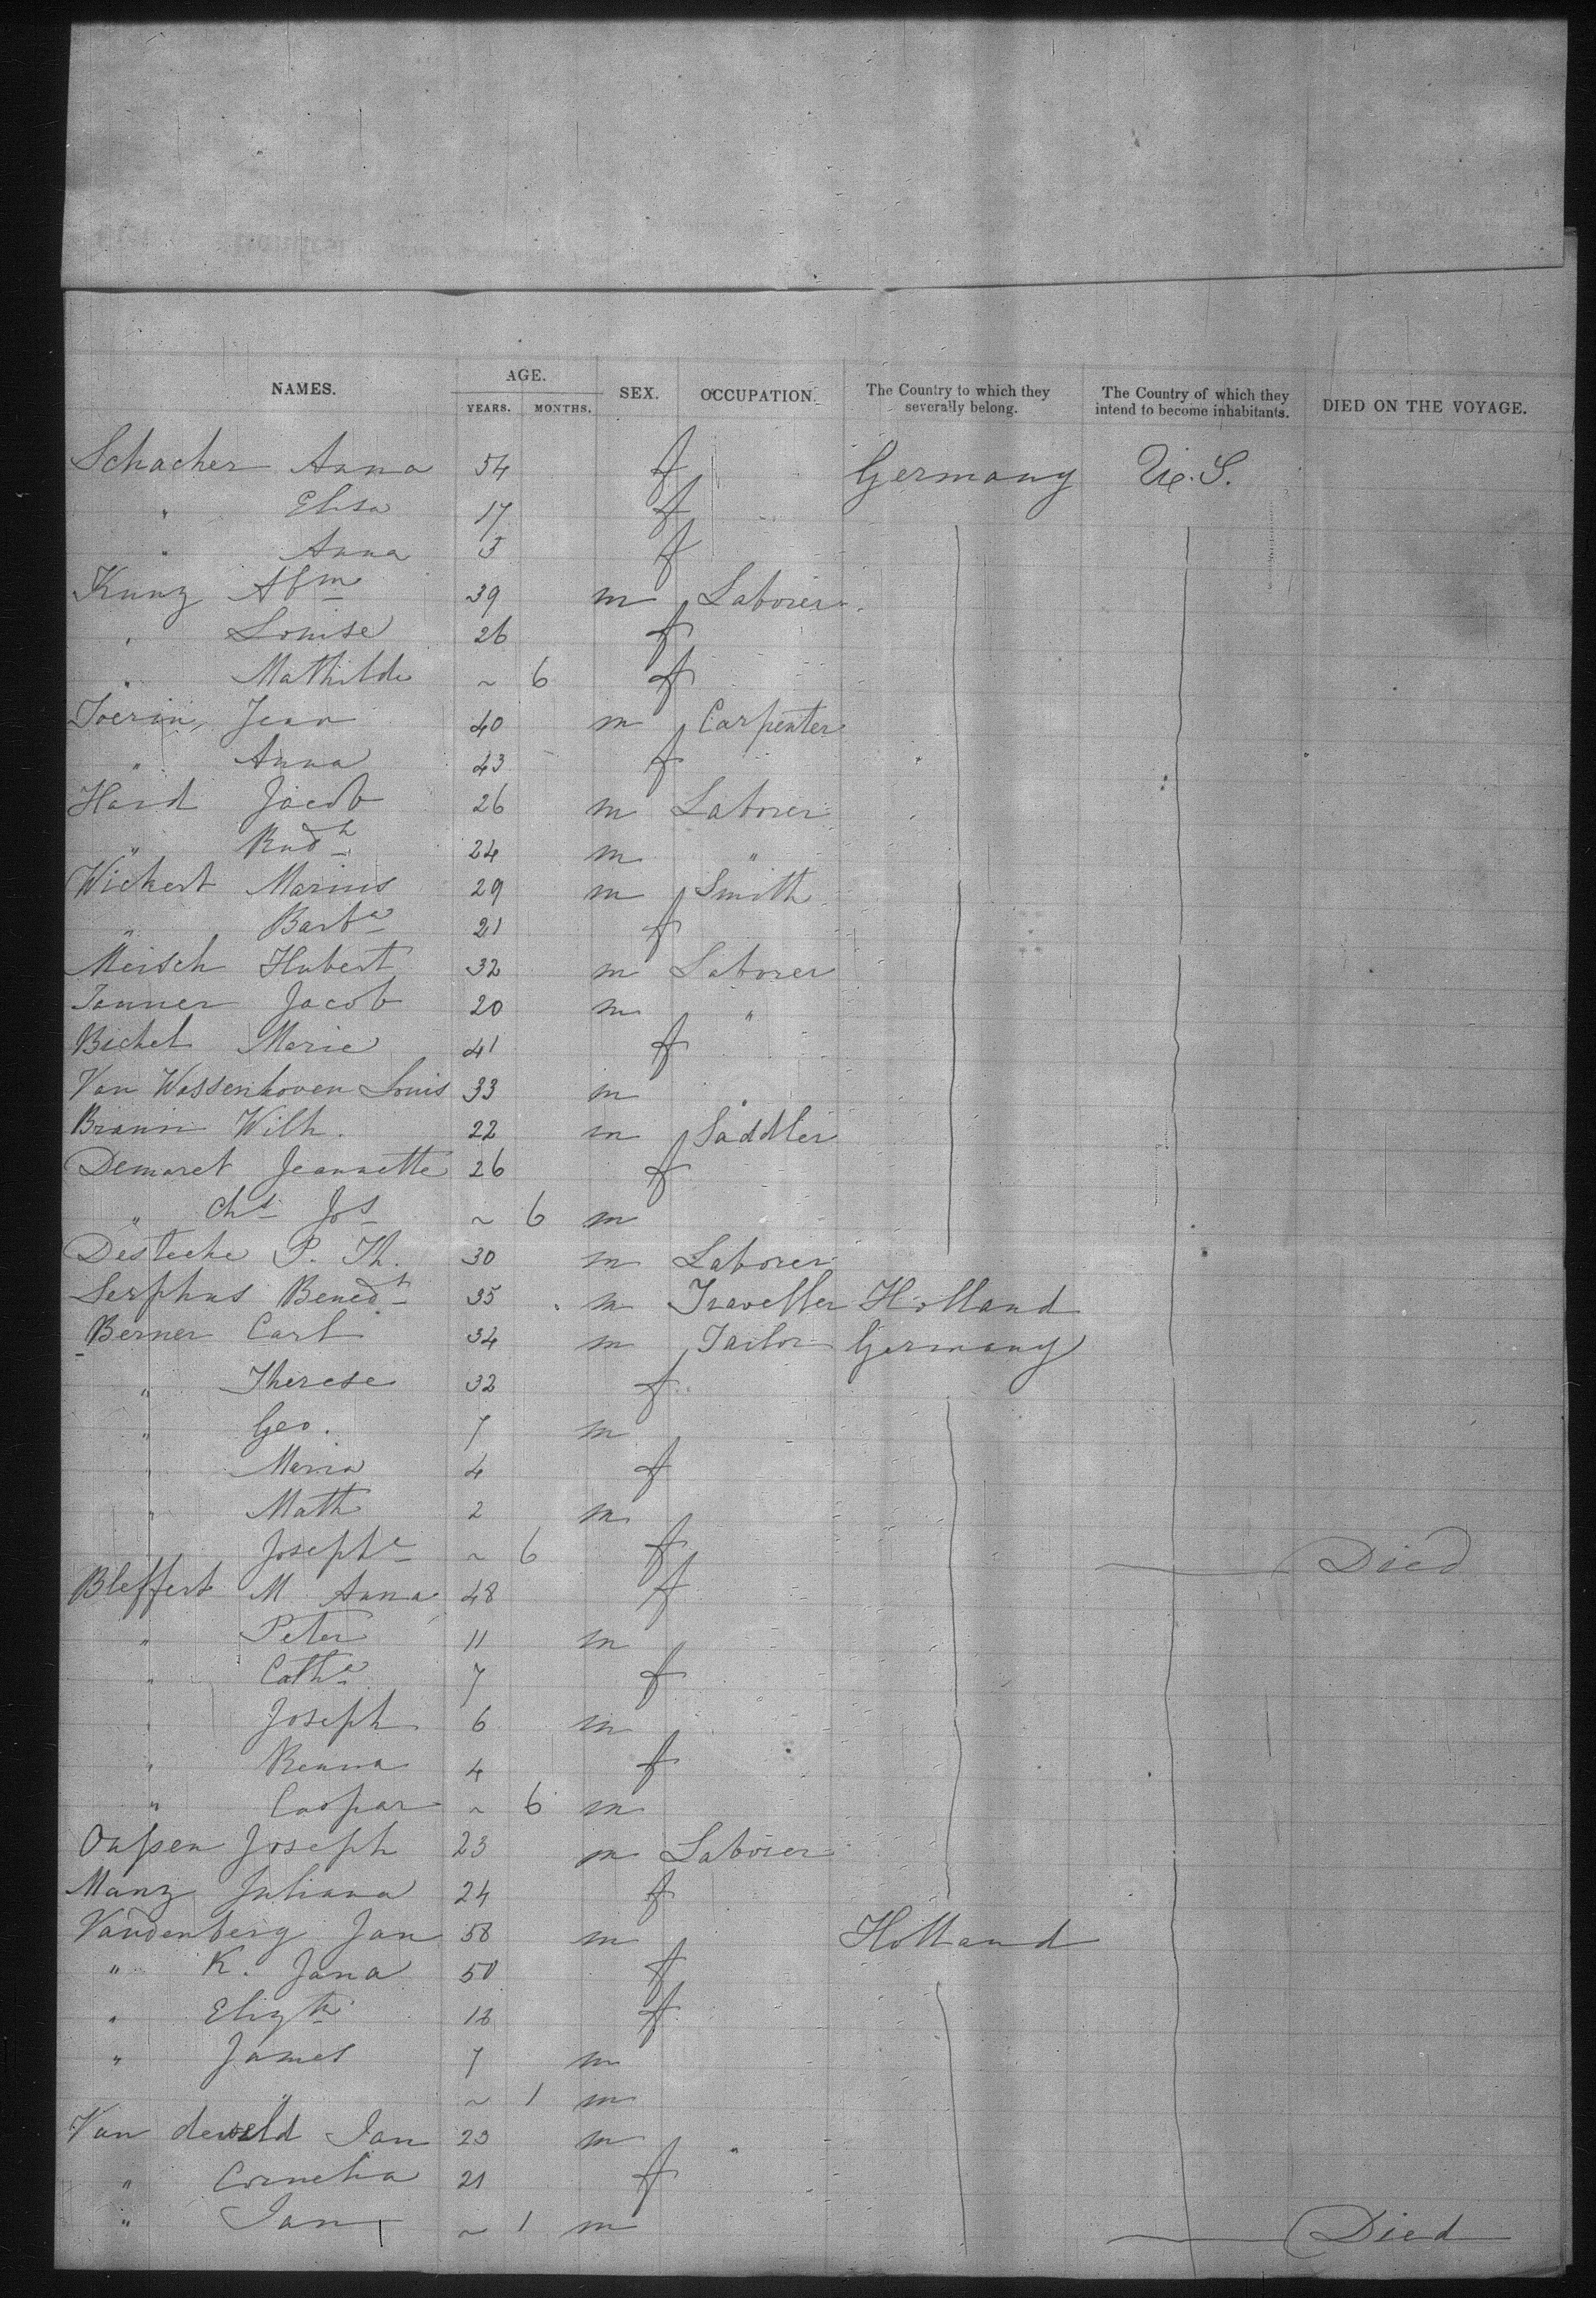 NAMES. AGE. SEX. OCCUPATION. The Country to which they severally belong. The Country of which they intend to become inhabitants. DIED ON THE VOYAGE.
YEARS. MONTHS.
Schacher Anna 54 f Germany U.S.
" Elisa 17 f
" Anna 5 f
Kunz Abm 39 m Laborer
" Louise 26 f
" Mathilde ~ 6 f
Joerin, Jean 40 m Carpenter
" Anna 43 f
Hard Jacob 26 m Laborer
" Rudh 24 m "
Wickert Marius 29 m Smith
" Barba 21 f
Meisch Hubert 32 m Laborer
Tanner Jacob 20 m "
Bichel Marie 41 f
Van Wassenhoven Louis 33 m
Braun Wilh. 22 m Saddler
Demaret Jeannette 26 f
" Chs Jos ~ 6 m
Desteche P. Th. 30 m Laborer
Serphus Benedt 35 m Traveller Holland
Berner Carl 34 m Tailor Germany
" Therese 32 f
" Geo. 7 m
" Maria 4 f
" Math 2 m
Josephe ~ 6 f Died
Bleffert M Anna 48 f
" Peter 11 m
" Catha 7 f
" Joseph 6 m
" 4 f
" Caspar ~ 6 m
Joseph 23 m Laborer
Manz Juliana 24 f
Vandenberg Jan 58 m Holland
" K. Jana 50 f
" Elizth f
" James 7 m
" ~ 1 m
Van develd Jan 23 m
" Cornelia 21 f
" Jan ~ 1 m Died